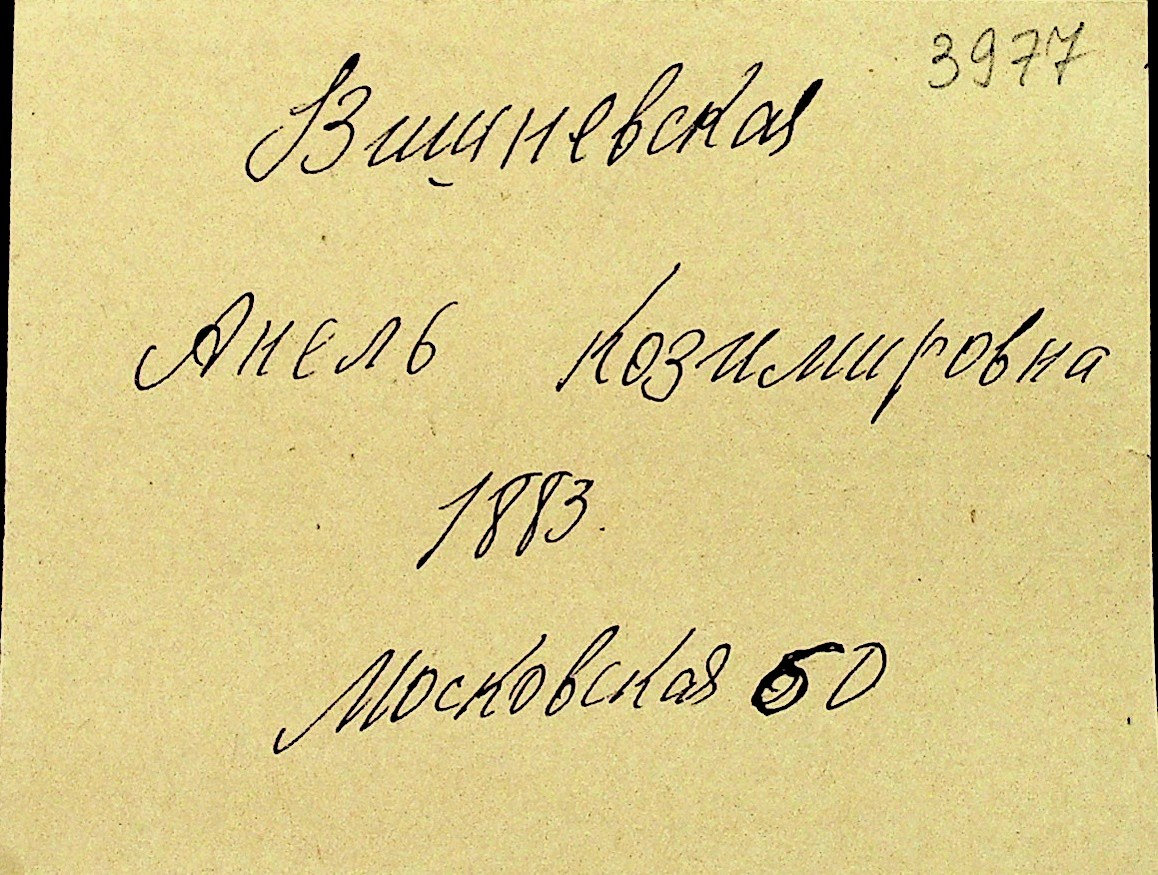 3977
Вишневская
Анель Козимировна
1883.
Московская 50